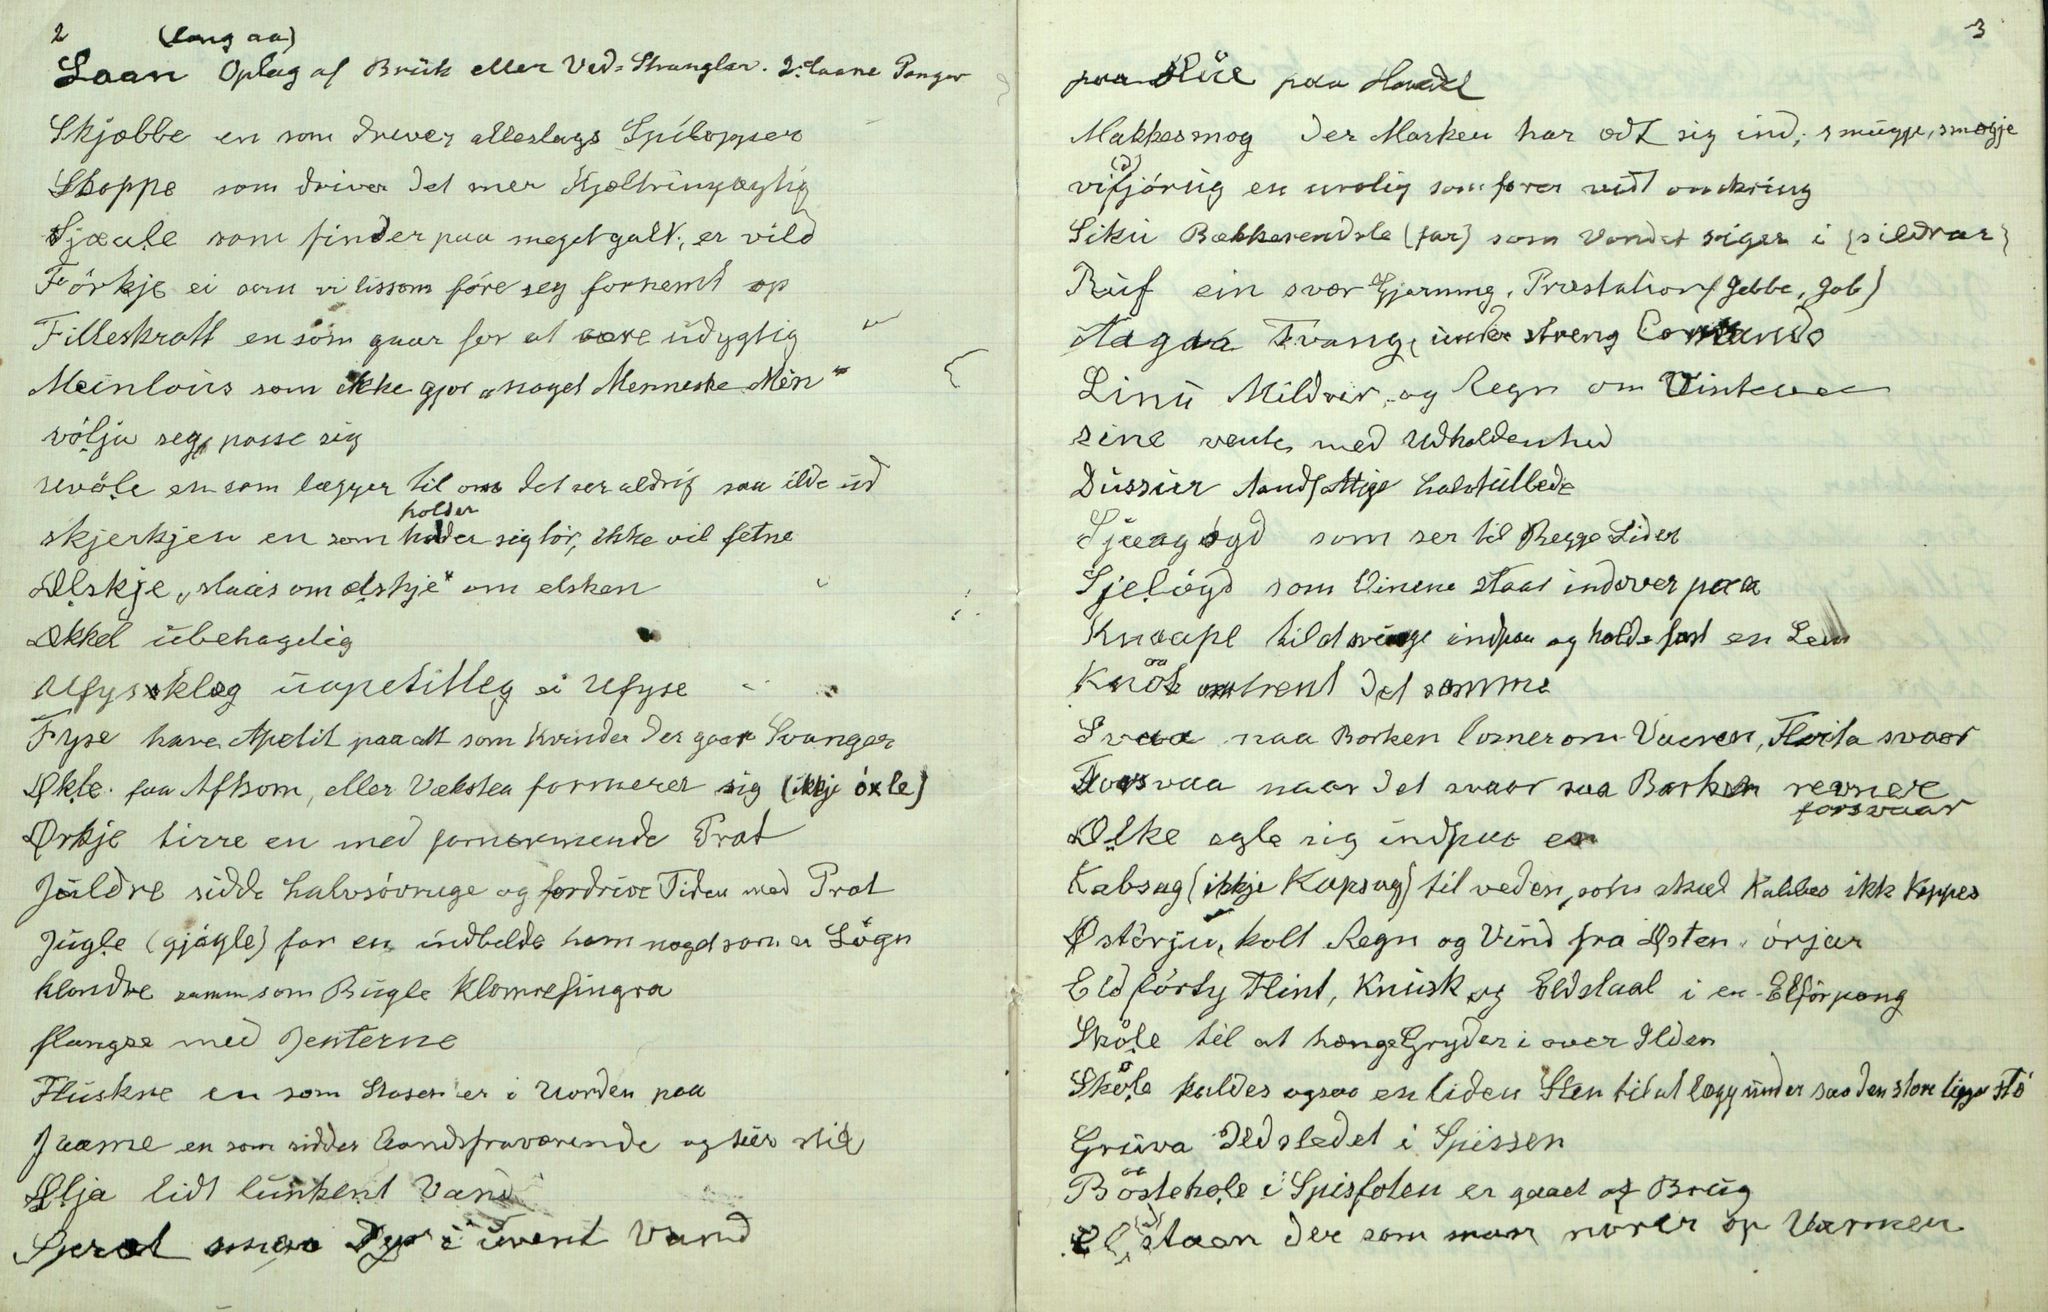 2 (lang aa)
Laan Oplag af Brük eller Ved-Strangler. 2. laane Penger
Skjæbbe en som drever alleslags Spilopper
Skoppe som driver det mer Kjæltringagtig
Sjæale som finder paa meget galt, er vild
Förkje ei som vi lissom före seg fornemt op
Filleskratt en som gaar for at være üdygtig
Meinloüs som ikke gjør "noget Menneske Mén"
völju seg, passe sig
uvöle en som lægger til om det ser aldrig saa ilde üd
holder
skjerkjen en som holder sig tör, ikke vil fetne
Ælskje, "slaaes om ælskje" om elsken
Ækkel übehagelig
Ufysseklæg üapetitleg ei Ufyse
Fyse have Apetit paa alt som Kvinder der gaar Svanger
Økle faa Afkom, eller Væksten formerer sig (ikkje óxle)
Ørkje tirre en med fornærmende Prat
Jüldre sidde halvsövnige og fordrive Tiden med Prat
Jügle (gjögle) for en, indbilde ham noget som er Lögn
klondre samm som Bügle Klomrefingra
flangse med Jenterne
Flüskne en som Stasen er i Uorden paa
Jaame en som sidder Aandsfraværende og tier stil
Ølja lidt lünkent Vand
Spræl smaa Dyr i ürent Vand
3
paa Hüe paa Hovedet
Makkesmog der Marken har ædt sig ind, smügge, smøgje
vi(d)fjörüg en urolig som farer vidt omkring
Siku Bækkerendsle (far) som Vandet siger i (sildrar)
Rüf ein svær Gjerning, Præstation (Jobbe, Job)
Aagaa Tvang, ünder streng Comando
Linü Mildveir, og Regn om Vinteren
sine vente med Udholdenhed
Düssür Aandsfattige halvtüllede
Sjaagögd som ser til Begge Sider
Sjelögd som Öinene staar indover paa
Knaape til at svinge indpaa og holde fast en Lem
Knöt omtrent det samme
Svaa naa Barken losner om Vaaren, Floita svaar
Forsvaa naar det svaar saa Barken revner
forsvaar
Ølke egle sig indpaa en
Kabsag (ikkje Kapsag) til veden, som skal Kabbes ikk Kappes
Østörju, kolt Regn og Vind fra Østen, örjar
Eldförty Flint, Knüsk og Eldstaal i en Elförpong
Sköle til at hænge Gryder i over Ilden
Sköle kaldes ogsaa en liden Sten til at lægg ünder saa den store ligger stö
Grüva Ildstedet i Spissen
Böstehole i Spisfoten er gaaet af Brüg
El(d)staan der som man nörer op Varmen